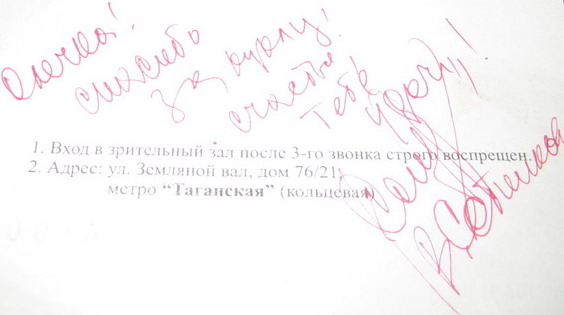 Олечка!
спасибо
за куклу!
счастья
тебе!
удачи!!!
1. Вход в зрительный зал после 3-го звонка строго воспрещен.
2. Адрес: ул. Земляной вал, дом 76/21,
метро “Таганская” (кольцевая)